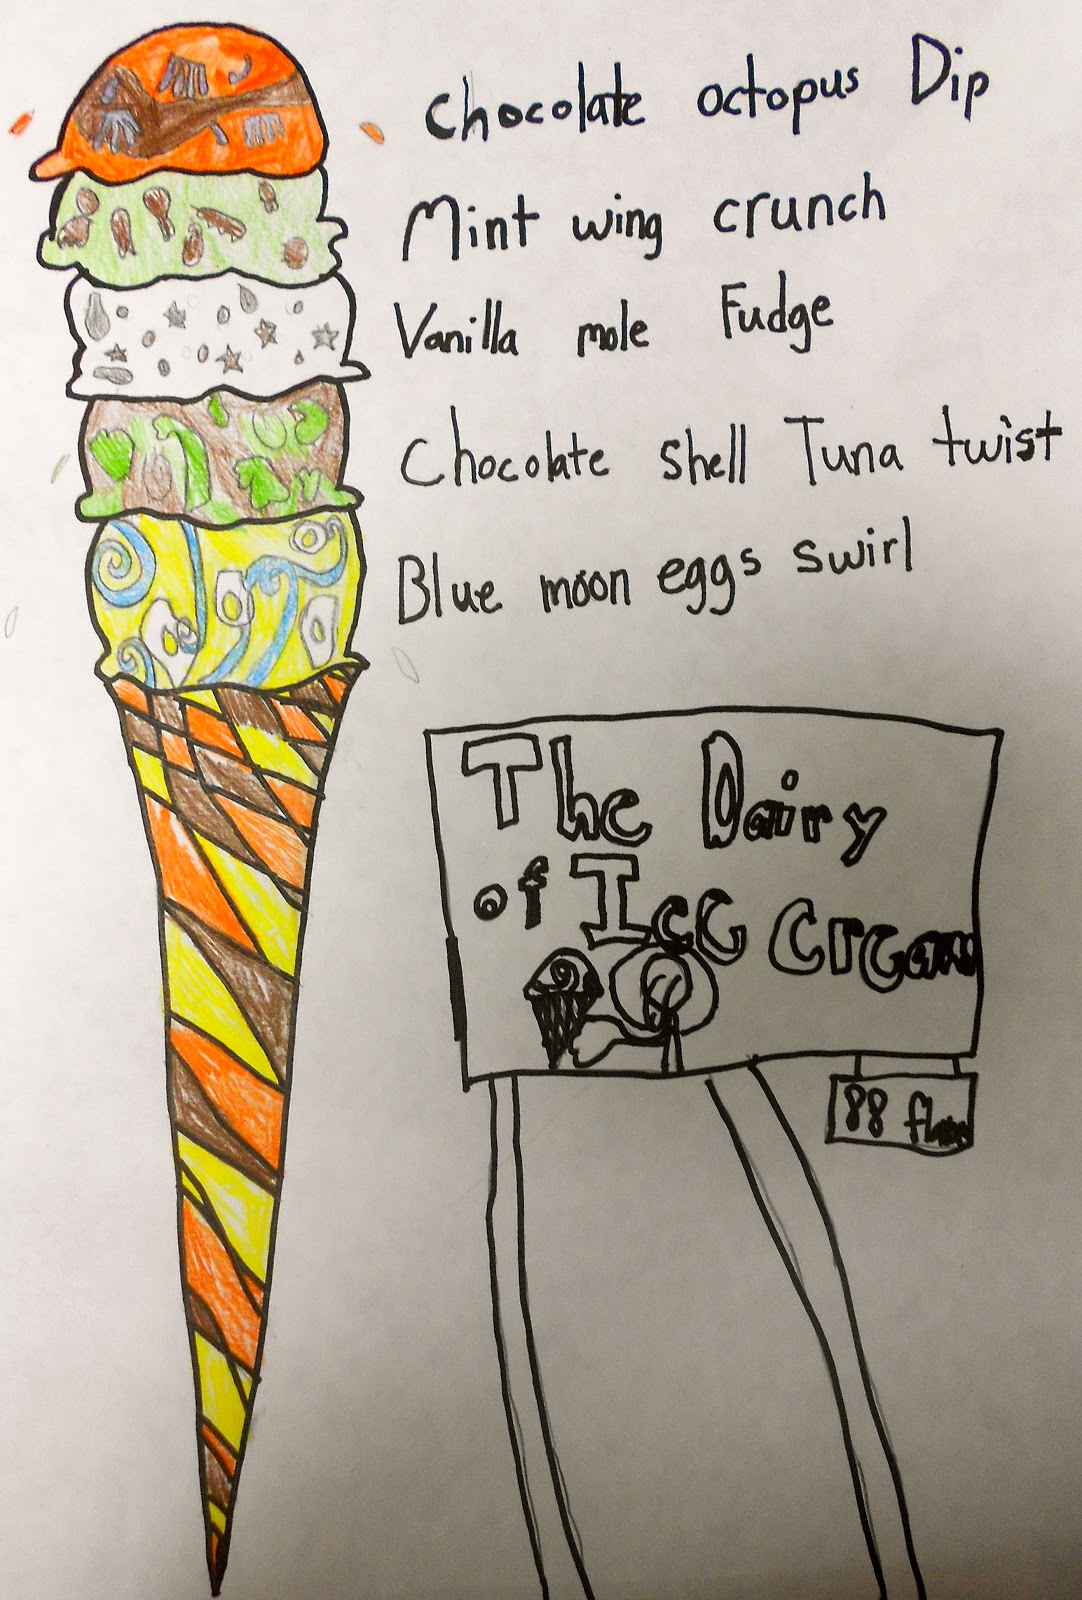 chocolate octopus Dip
Mint wing crunch
Vanilla mole Fudge
Chocolate shell Tuna twist
Blue moon eggs swirl
The Dairy
of Ice Cream
88